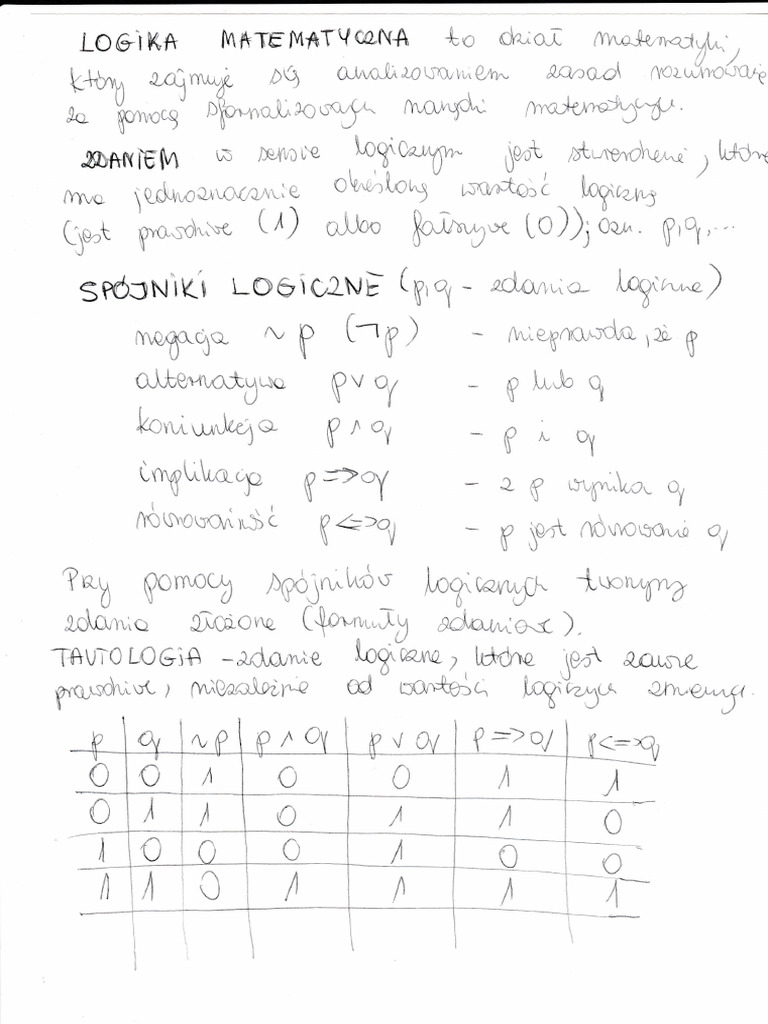 LOGIKA MATEMATYCZNA to dział matematyki,
który zajmuje się analizowaniem zasad rozumowania
za pomocą sformalizowanych narzędzi matematycznych.
ZDANIEM w sensie logicznym jest stwierdzenie, które
ma jednoznacznie określoną wartość logiczną
(jest prawdziwe (1) albo fałszywe (0)); ozn. p,q,...
SPÓJNIKI LOGICZNE (p,q - zdania logiczne)
negacja ~p (¬p) - nieprawda, że p
alternatywa p∨q - p lub q
koniunkcja p∧q - p i q
implikacja p=>q - z p wynika q
równoważność p<=>q - p jest równoważne q
Przy pomocy spójników logicznych tworzymy
zdania złożone (formuły zdaniowe).
TAUTOLOGIA - zdanie logiczne, które jest zawsze
prawdziwe, niezależnie od wartości logicznych zmiennych.
p q ~p p∧q p∨q p=>q p<=>q
0 0 1 0 0 1 1
0 1 1 0 1 1 0
1 0 0 0 1 0 0
1 1 0 1 1 1 1